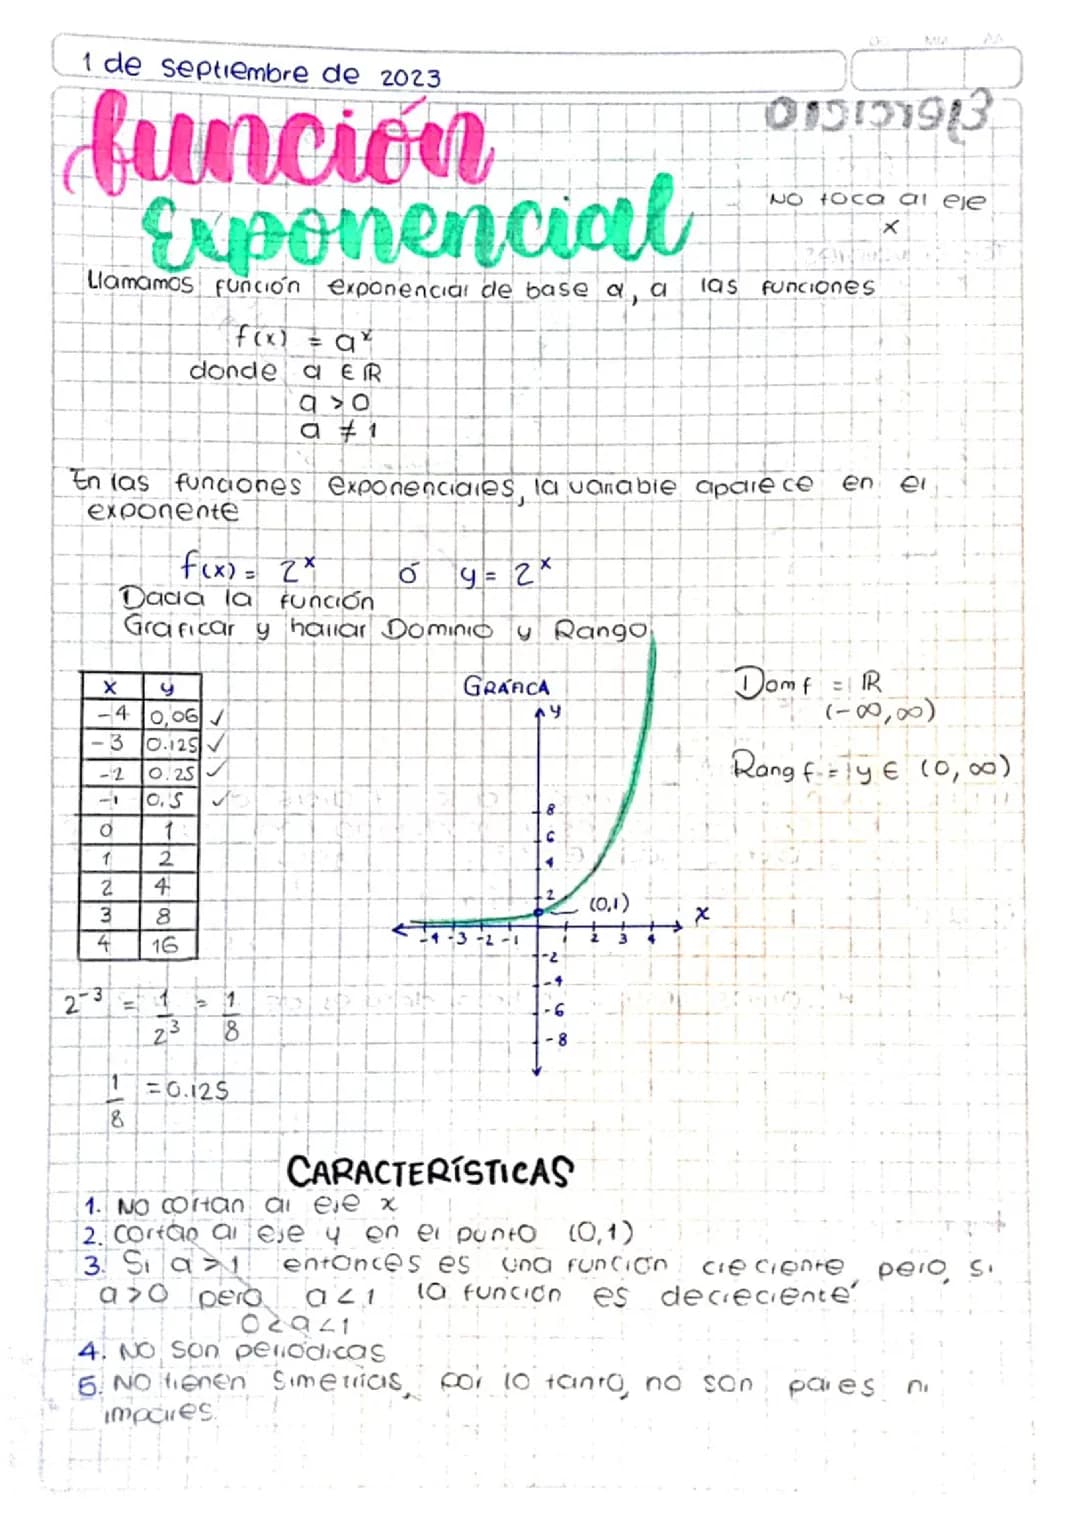 1 de septiembre de 2023
función
Exponencial
No toca al eje
x
Llamamos función exponencial de base a, a las funciones
f(x) = aˣ
donde a ∈ ℝ
a > 0
a ≠ 1
En las funciones exponenciales, la variable aparece en el
exponente
f(x) = 2ˣ ó y = 2ˣ
Dada la función
Graficar y hallar Dominio y Rango
x y
-4 0,06 ✓
-3 0.125 ✓
-2 0.25 ✓
-1 0,5 ✓
0 1
1 2
2 4
3 8
4 16
GRÁFICA
y
8
6
4
2
(0,1)
x
-4 -3 -2 -1 1 2 3 4
-2
-4
-6
-8
Dom f = ℝ
(-∞,∞)
Rang f = y ∈ (0, ∞)
2⁻³ = 1/2³ = 1/8
1/8 = 0.125
CARACTERÍSTICAS
1. No cortan al eje x
2. Cortan al eje y en el punto (0,1)
3. Si a > 1 entonces es una función creciente, pero si
a > 0 pero a < 1 la función es decreciente
0 < a < 1
4. No son periódicas
5. No tienen simetrías, por lo tanto, no son pares ni
impares.